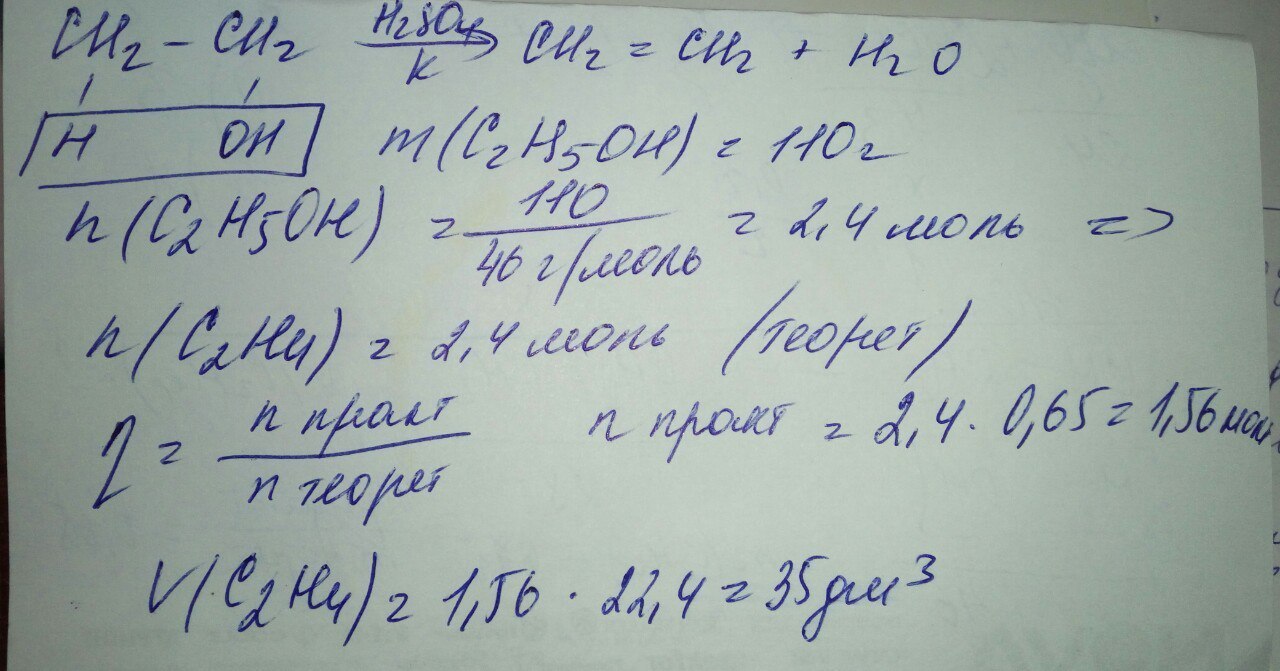 CH₂ – CH₂ H₂SO₄ k → CH₂ = CH₂ + H₂O
H OH m(C₂H₅OH) = 110г
n(C₂H₅OH) = 110 / 46 г/моль = 2,4 моль =>
n(C₂H₄) = 2,4 моль (теорет)
η = n практ / n теорет n практ = 2,4 · 0,65 = 1,56 моль
V(C₂H₄) = 1,56 · 22,4 = 35дм³